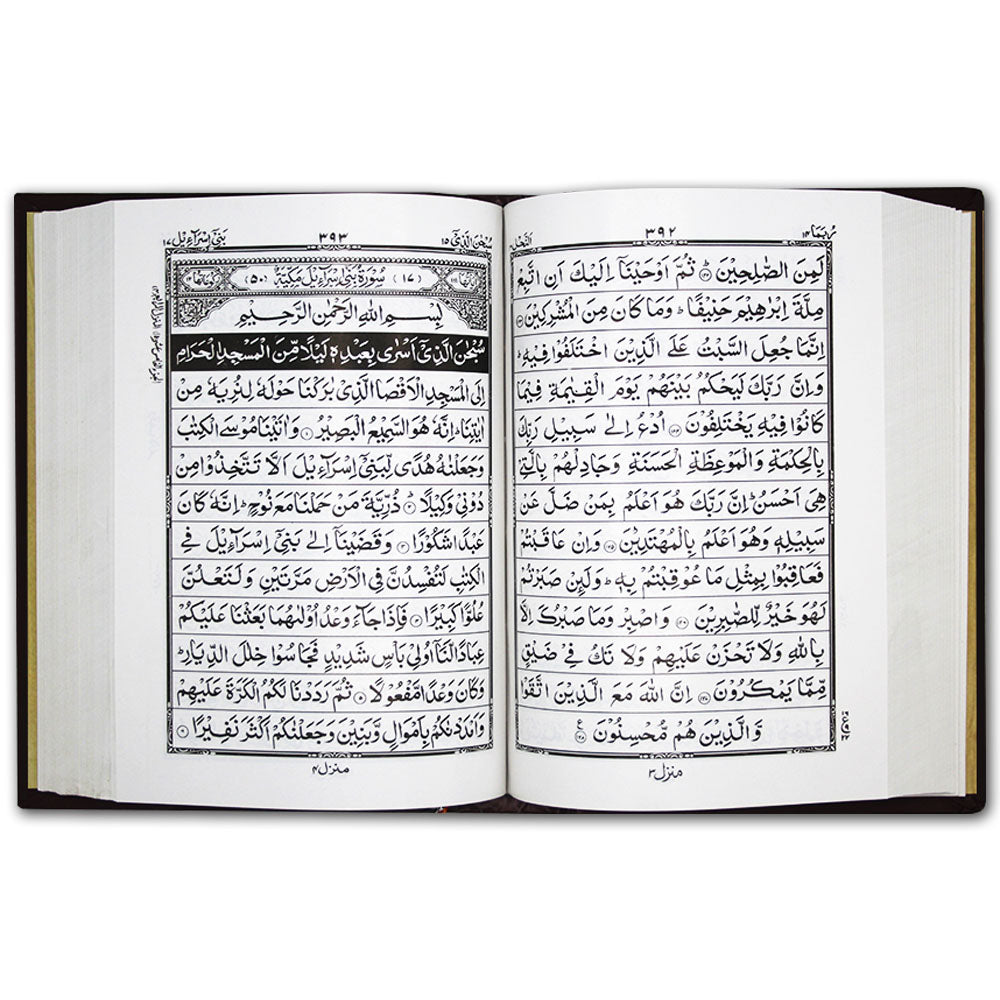 رُبَمَا ۱۴
۳۹۲
النَّحْل
لَمِنَ الصّٰلِحِيْنَ ؕ ثُمَّ اَوْحَيْنَاۤ اِلَيْكَ اَنِ اتَّبِعْ
مِلَّةَ اِبْرٰهِيْمَ حَنِيْفًا ؕ وَمَا كَانَ مِنَ الْمُشْرِكِيْنَ
اِنَّمَا جُعِلَ السَّبْتُ عَلَى الَّذِيْنَ اخْتَلَفُوْا فِيْهِ ؕ
وَاِنَّ رَبَّكَ لَيَحْكُمُ بَيْنَهُمْ يَوْمَ الْقِيٰمَةِ فِيْمَا
كَانُوْا فِيْهِ يَخْتَلِفُوْنَ اُدْعُ اِلٰى سَبِيْلِ رَبِّكَ
بِالْحِكْمَةِ وَالْمَوْعِظَةِ الْحَسَنَةِ وَجَادِلْهُمْ بِالَّتِيْ
هِيَ اَحْسَنُ ؕ اِنَّ رَبَّكَ هُوَ اَعْلَمُ بِمَنْ ضَلَّ عَنْ
سَبِيْلِهٖ وَهُوَ اَعْلَمُ بِالْمُهْتَدِيْنَ ۱۲۵ وَاِنْ عَاقَبْتُمْ
فَعَاقِبُوْا بِمِثْلِ مَا عُوْقِبْتُمْ بِهٖ ؕ وَلَئِنْ صَبَرْتُمْ
لَهُوَ خَيْرٌ لِّلصّٰبِرِيْنَ وَاصْبِرْ وَمَا صَبْرُكَ اِلَّا
بِاللّٰهِ وَلَا تَحْزَنْ عَلَيْهِمْ وَلَا تَكُ فِيْ ضَيْقٍ
مِّمَّا يَمْكُرُوْنَ اِنَّ اللّٰهَ مَعَ الَّذِيْنَ اتَّقَوْا
وَّالَّذِيْنَ هُمْ مُّحْسِنُوْنَ ۱۲۸ ع
منزل ۳
سُبْحٰنَ الَّذِيْۤ ۱۵
۳۹۳
بَنِيْۤ اِسْرَآءِيْل ۱۷
(۱۷) سُوْرَةُ بَنِيْۤ اِسْرَآءِيْلَ مَكِّيَّةٌ (۵۰)
بِسْمِ اللّٰهِ الرَّحْمٰنِ الرَّحِيْمِ
سُبْحٰنَ الَّذِيْۤ اَسْرٰى بِعَبْدِهٖ لَيْلًا مِّنَ الْمَسْجِدِ الْحَرَامِ
اِلَى الْمَسْجِدِ الْاَقْصَا الَّذِيْ بٰرَكْنَا حَوْلَهٗ لِنُرِيَهٗ مِنْ
اٰيٰتِنَا ؕ اِنَّهٗ هُوَ السَّمِيْعُ الْبَصِيْرُ ۱ وَاٰتَيْنَا مُوْسَى الْكِتٰبَ
وَجَعَلْنٰهُ هُدًى لِّبَنِيْۤ اِسْرَآءِيْلَ اَلَّا تَتَّخِذُوْا مِنْ
دُوْنِيْ وَكِيْلًا ۲ ذُرِّيَّةَ مَنْ حَمَلْنَا مَعَ نُوْحٍ ؕ اِنَّهٗ كَانَ
عَبْدًا شَكُوْرًا ۳ وَقَضَيْنَاۤ اِلٰى بَنِيْۤ اِسْرَآءِيْلَ فِي
الْكِتٰبِ لَتُفْسِدُنَّ فِي الْاَرْضِ مَرَّتَيْنِ وَلَتَعْلُنَّ
عُلُوًّا كَبِيْرًا ۴ فَاِذَا جَآءَ وَعْدُ اُوْلٰىهُمَا بَعَثْنَا عَلَيْكُمْ
عِبَادًا لَّنَاۤ اُولِيْ بَاْسٍ شَدِيْدٍ فَجَاسُوْا خِلٰلَ الدِّيَارِ ؕ
وَكَانَ وَعْدًا مَّفْعُوْلًا ۵ ثُمَّ رَدَدْنَا لَكُمُ الْكَرَّةَ عَلَيْهِمْ
وَاَمْدَدْنٰكُمْ بِاَمْوَالٍ وَّبَنِيْنَ وَجَعَلْنٰكُمْ اَكْثَرَ نَفِيْرًا ۶
منزل ۴